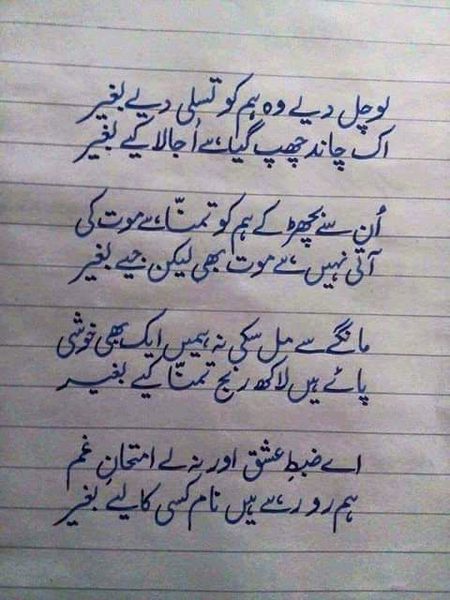 لو چل دیے وہ ہم کو تسلی دیے بغیر
اک چاند چھپ گیا ہے اُجالا کیے بغیر
اُن سے بچھڑ کے ہم کو تمنّا ہے موت کی
آتی نہیں ہے موت بھی لیکن جیے بغیر
مانگے سے مل سکی نہ ہمیں ایک بھی خوشی
پائے ہیں لاکھ رنج تمنّا کیے بغیر
اے ضبطِ عشق اور نہ لے امتحانِ غم
ہم رو رہے ہیں نام کسی کا لیے بغیر